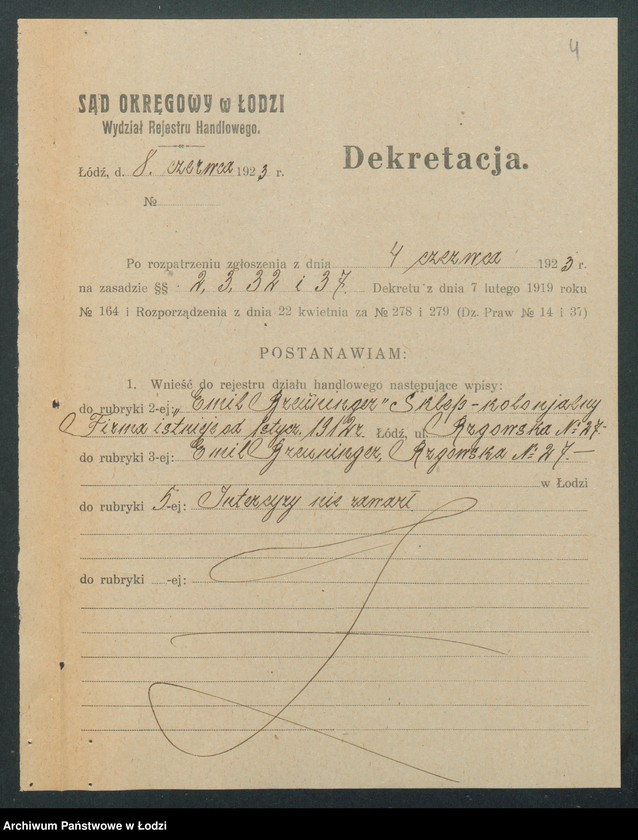 4
SĄD OKRĘGOWY w ŁODZI
Wydział Rejestru Handlowego.
Dekretacja.
Łódź, d. 8. czerwca 1923 r.
№
Po rozpatrzeniu zgłoszenia z dnia 4 czerwca 1923 r.
na zasadzie §§ 2, 3, 32 i 37. Dekretu z dnia 7 lutego 1919 roku
№ 164 i Rozporządzenia z dnia 22 kwietnia za № 278 i 279 (Dz. Praw № 14 i 37)
POSTANAWIAM:
1. Wnieść do rejestru działu handlowego następujące wpisy:
do rubryki 2-ej: „Emil Breuninger" Sklep-kolonjalny
Firma istnieje od 1 stycz. 1912 r. Łódź, ul. Rzgowska № 27.-
do rubryki 3-ej: Emil Breuninger, Rzgowska № 27.—
w Łodzi
do rubryki 5-ej: Intercyzy nie zawarł
do rubryki -ej:
Archiwum Państwowe w Łodzi